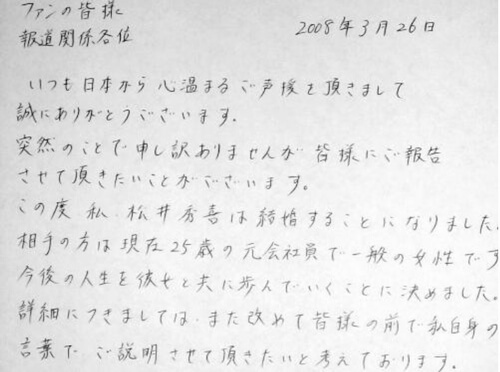 ファンの皆様
報道関係各位
2008年3月26日
いつも日本から心温まるご声援を頂きまして
誠にありがとうございます.
突然のことで申し訳ありませんが皆様にご報告
させて頂きたいことがございます.
この度 私、松井秀喜は結婚することになりました.
相手の方は現在25歳の元会社員で一般の女性です
今後の人生を彼女と共に歩んでいくことに決めました.
詳細につきましては、また改めて皆様の前で私自身の
言葉でご説明させて頂きたいと考えております.